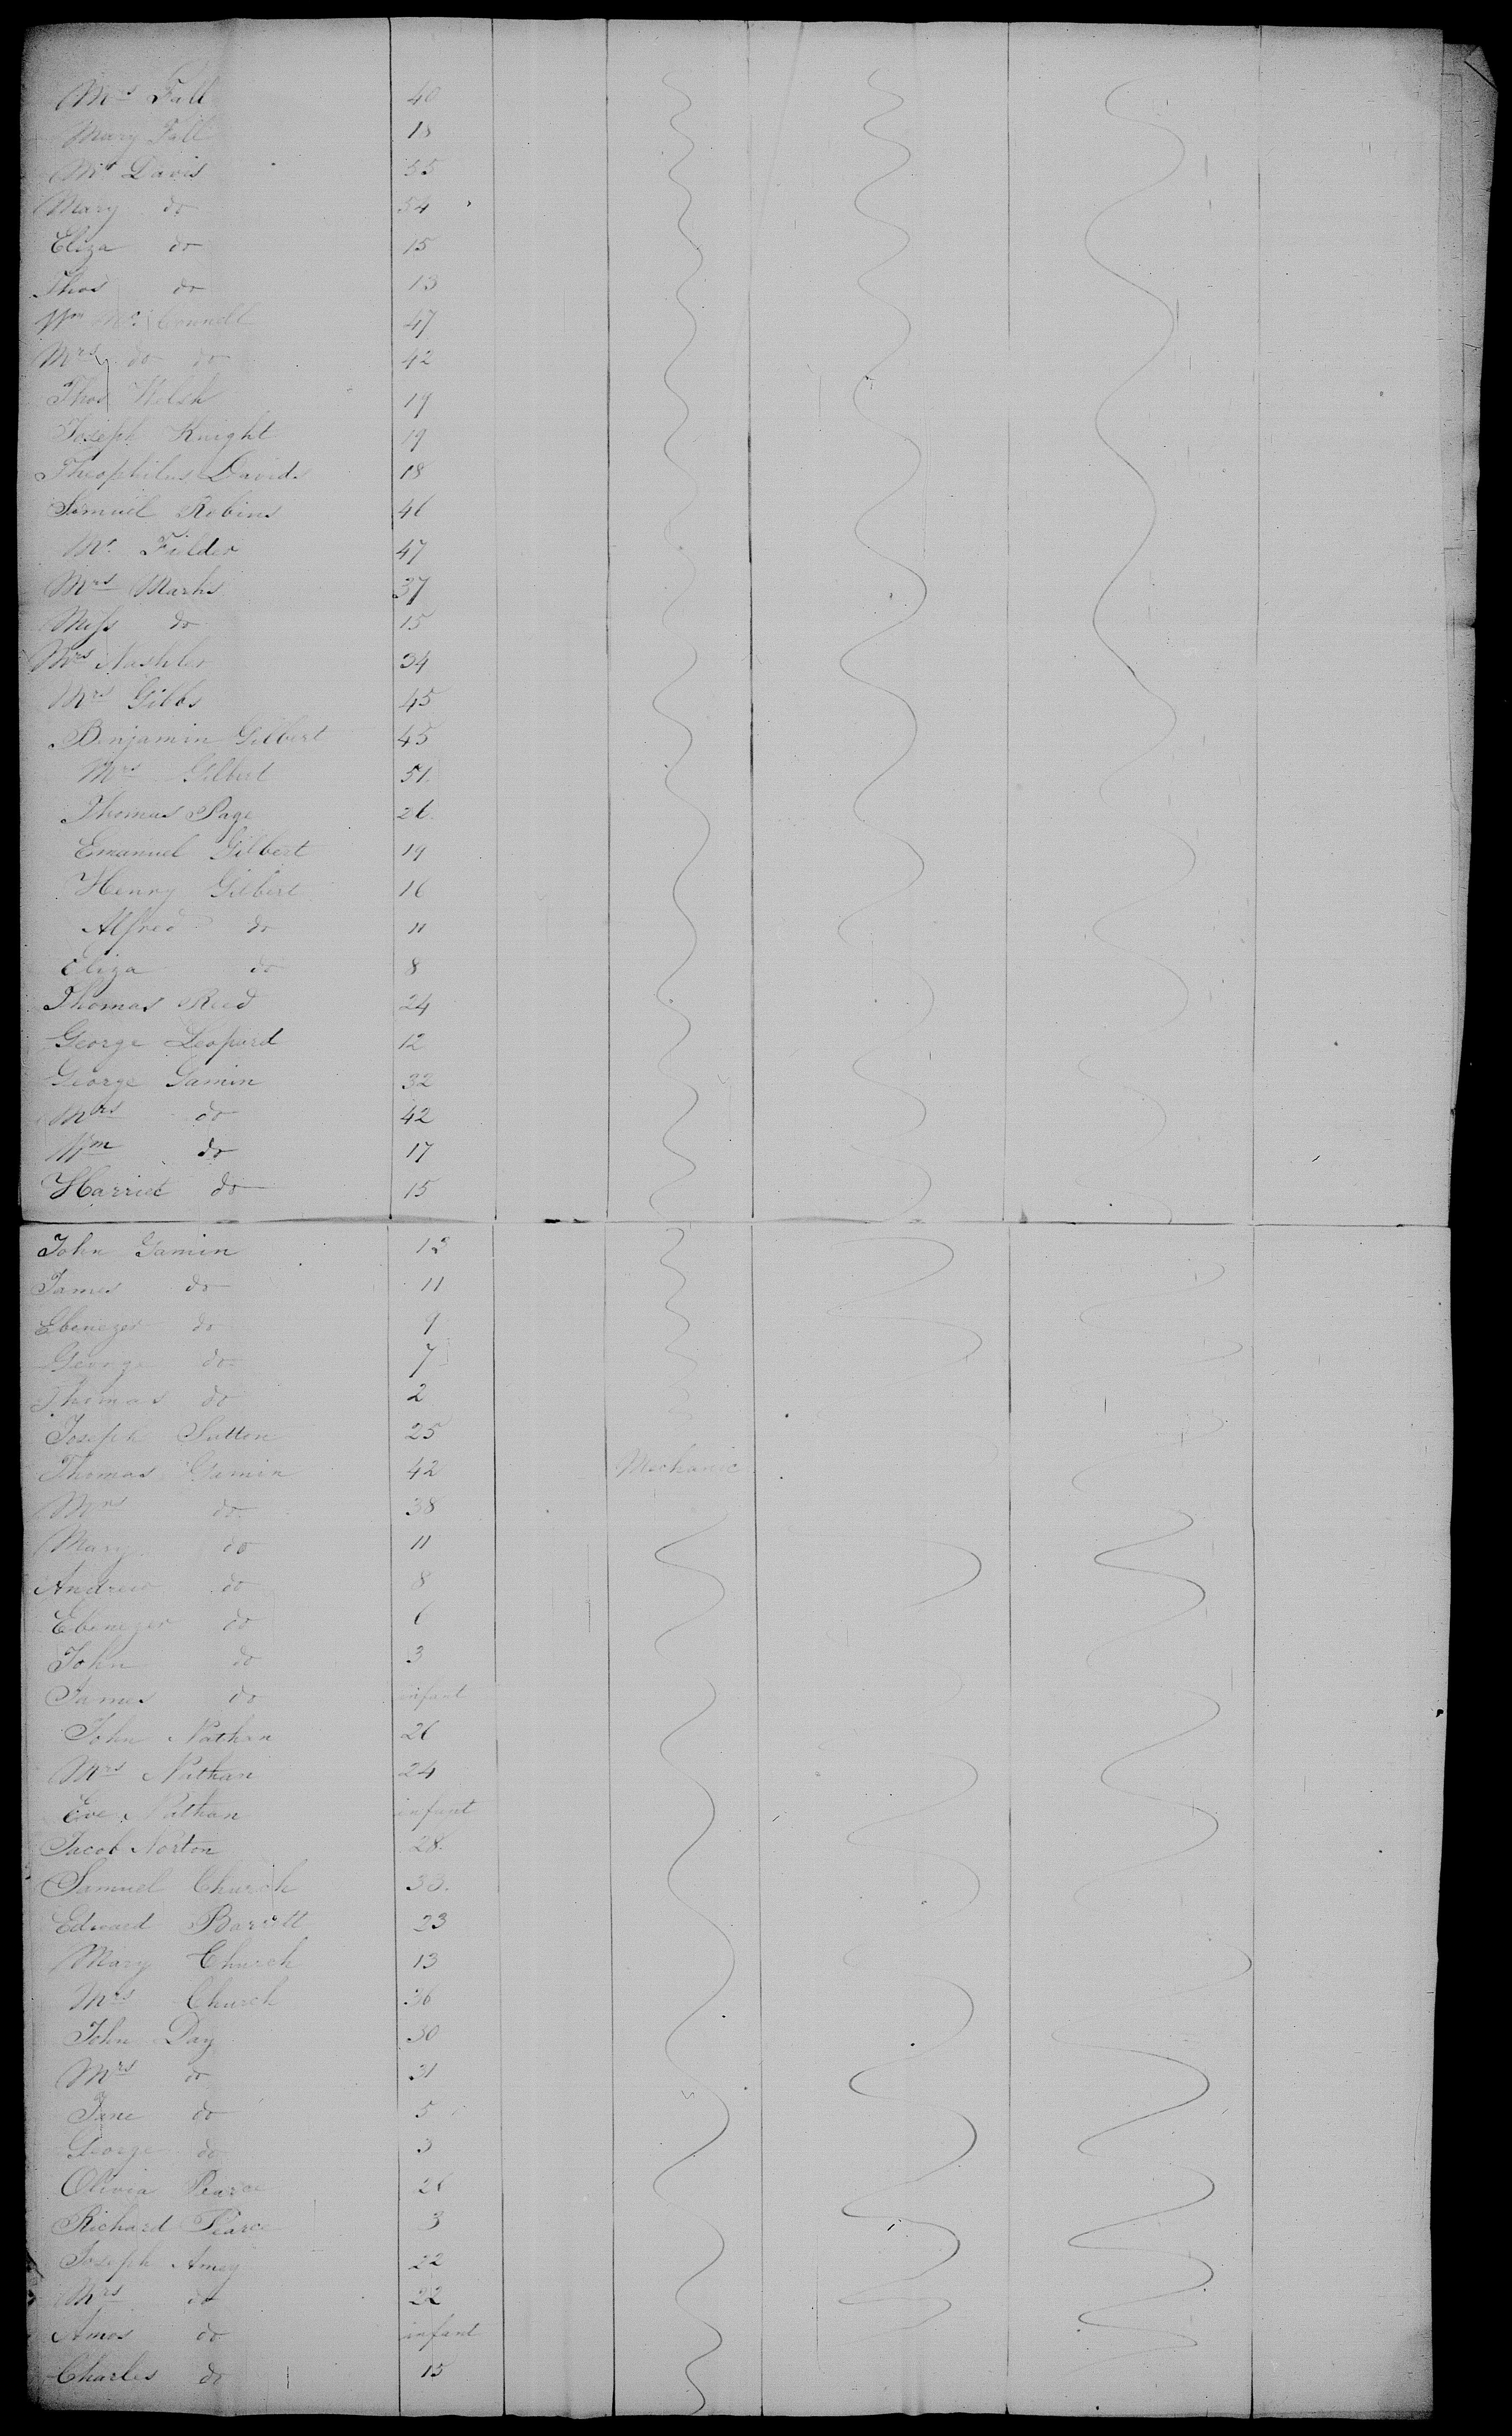 Mrs Fall 40
Mary Fall 18
Mr Davis 55
Mary do 54
Eliza do 15
Thos do 13
Wm Mc Connell 47
Mrs do do 42
Thos Welsh 19
Joseph Knight 19
Theophilus Davids 18
Samuel Robins 46
Mr Filder 47
Mrs Marks 37
Miss do 15
Mrs 34
Mrs Gibbs 45
Benjamin Gilbert 45
Mrs Gilbert 51
Thomas Page 26
Emanuel Gilbert 19
Henry Gilbert 16
Alfred do 11
Eliza do 8
Thomas Reed 24
George Leopard 12
George Gamin 32
Mrs do 42
Wm do 17
Harriet do 15
John Gamin 13
James do 11
Ebenezer do 9
George do 7
Thomas do 2
Joseph Sutton 25
Thomas Gamin 42 Mechanic
Mrs do 38
Mary do 11
Andrew do 8
Ebenezer do 6
John do 3
James do infant
John Nathan 26
Mrs Nathan 24
Eve Nathan infant
Jacob Norton 28
Samuel Church 33
Edward Barrett 23
Mary Church 13
Mrs Church 36
John Day 30
Mrs do 31
Jane do 5
George do 3
Olivia Pearce 26
Richard Pearce 3
Joseph Amey 22
Mrs do 22
Amos do infant
Charles do 15